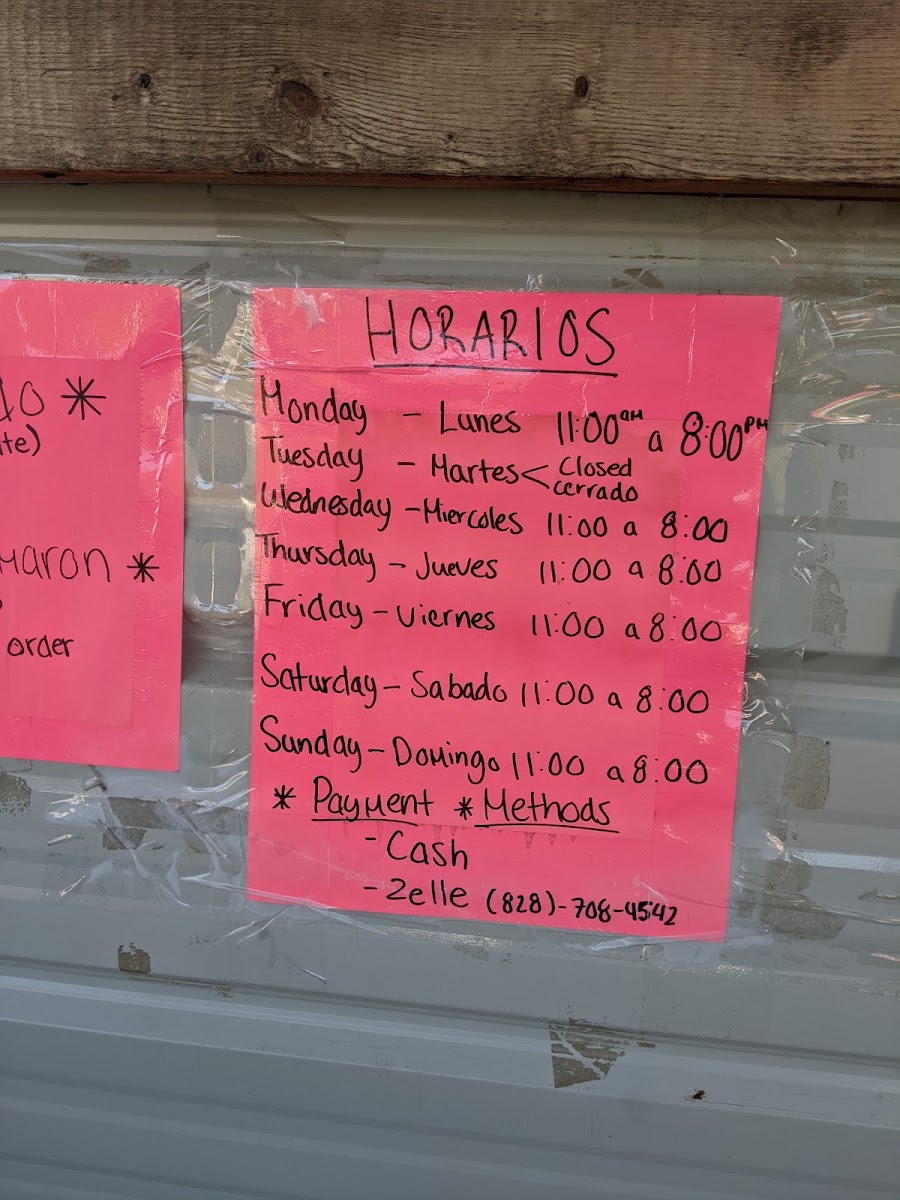 HORARIOS
Monday - Lunes 11:00 AM a 8:00 PM
Tuesday - Martes < Closed
cerrado
Wednesday - Miercoles 11:00 a 8:00
Thursday - Jueves 11:00 a 8:00
Friday - Viernes 11:00 a 8:00
Saturday - Sabado 11:00 a 8:00
Sunday - Domingo 11:00 a 8:00
* Payment * Methods
- Cash
- Zelle (828)-708-4542
*
*
order